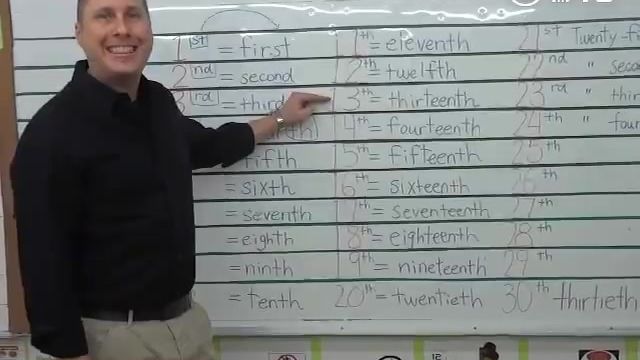 1st = first
2nd = second
3rd = third
= fifth
= sixth
= seventh
= eighth
= ninth
= tenth
11th = eleventh
12th = twelfth
13th = thirteenth
14th = fourteenth
15th = fifteenth
16th = sixteenth
17th = seventeenth
18th = eighteenth
19th = nineteenth
20th = twentieth
21st Twenty-fi
22nd " seco
23rd " thir
24th " four
25th
26th
27th
28th
29th
30th thirtieth